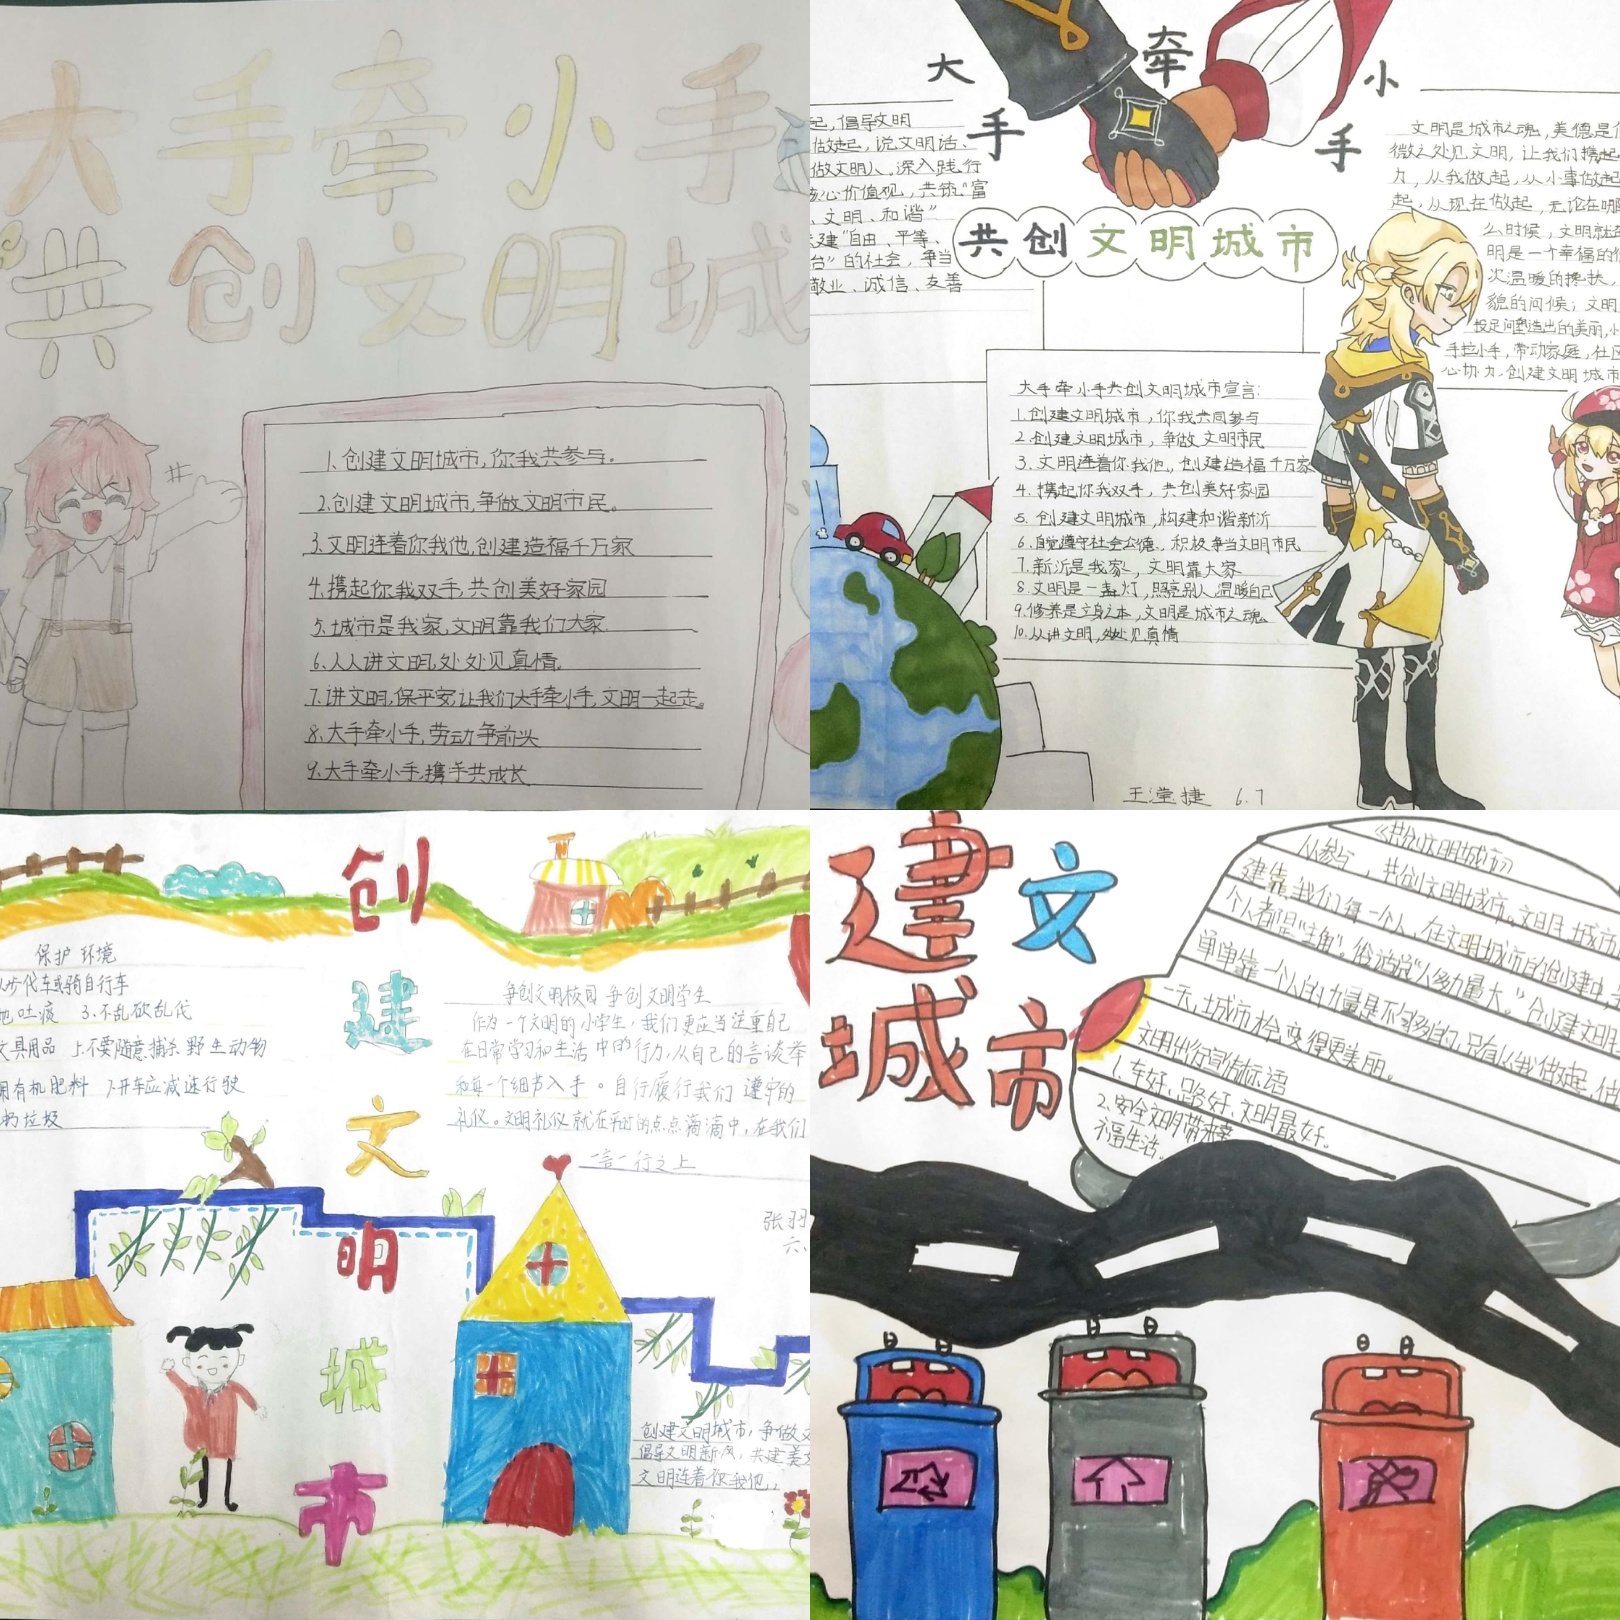 大手牵小手
共创文明城
1.创建文明城市,你我共参与。
2.创建文明城市,争做文明市民。
3.文明连着你我他,创建造福千万家
4.携起你我双手,共创美好家园
5.城市是我家,文明靠我们大家
6.人人讲文明,处处见真情。
7.讲文明,保平安,让我们大手牵小手,文明一起走。
8.大手牵小手,劳动争前头
9.大手牵小手,携手共成长
大手牵小手
共创文明城市
起,倡导文明
做起,说文明话、
做文明人,深入践行
核心价值观,共筑“富
、文明、和谐”
建“自由、平等、
”的社会,争当
敬业、诚信、友善
文明是城市之魂,美德是
微之处见文明,让我们携起
力,从我做起,从小事做起
起,从现在做起,无论在哪
么时候,文明就在
明是一个幸福的
次温暖的搀扶,
貌的问候;文明
投足间塑造出的美丽,小
手拉小手,带动家庭,社区
心协力,创建文明城市
大手牵小手共创文明城市宣言:
1.创建文明城市,你我共同参与
2.创建文明城市,争做文明市民
3.文明连着你我他,创建造福千万家
4.携起你我双手,共创美好家园
5.创建文明城市,构建和谐新沂
6.自觉遵守社会公德,积极争当文明市民
7.新沂是我家,文明靠大家
8.文明是一盏灯,照亮别人温暖自己
9.修养是立身之本,文明是城市之魂
10.人讲文明,处处见真情
6.7
创建文明城市
保护环境
以步代车或骑自行车
地吐痰 3.不乱砍乱伐
文具用品 上不要随意捕杀野生动物
用有机肥料 7.开车应减速行驶
扔垃圾
争创文明校园 争创文明学生
作为一个文明的小学生,我们更应当注重自
在日常学习和生活中的行为,从自己的言谈举
和每一个细节入手。自行履行我们遵守的
礼仪。文明礼仪就在平时的点点滴滴中,在我们
一言一行之上
张羽
六、
创建文明城市,争做文
倡导文明新风,共建美
文明连着你我他,
建文
城市
《共创文明城市》
从参与,共创文明城市。文明城市
建靠我们每一个人,在文明城市的创建中,
个人都是“主角”。俗话说“人多力量大。”创建文明
单单靠一个人的力量是不够的,只有从我做起,
一天,城市松会变得更美丽。
文明出行宣传标语
1.车好、路好、文明最好。
2.安全文明带来幸
福生活。